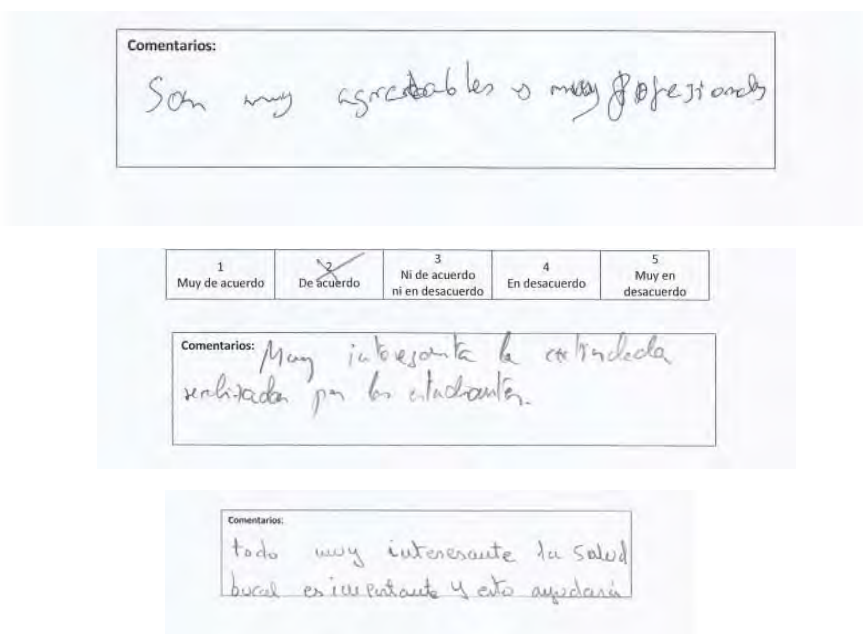 Comentarios:
Son muy agradables y muy profesionales
1
Muy de acuerdo
2
De acuerdo
3
Ni de acuerdo
ni en desacuerdo
4
En desacuerdo
5
Muy en
desacuerdo
Comentarios: Muy interesante la
realizada por los estudiantes.
Comentarios:
todo muy interesante la salud
bucal es importante y esto ayudaria